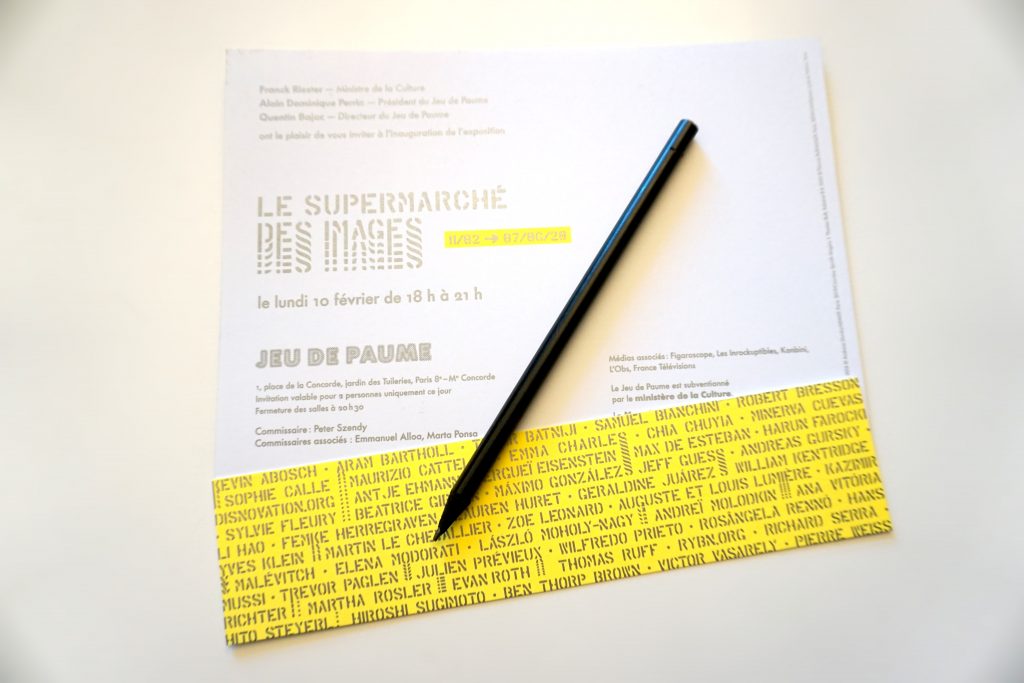 Franck Riester — Ministre de la Culture
Alain Dominique Perrin — Président du Jeu de Paume
Quentin Bajac — Directeur du Jeu de Paume
ont le plaisir de vous inviter à l'inauguration de l'exposition
LE SUPERMARCHÉ
DES IMAGES
11/02 → 07/06/20
le lundi 10 février de 18 h à 21 h
JEU DE PAUME
1, place de la Concorde, jardin des Tuileries, Paris 8e – Mo Concorde
Invitation valable pour 2 personnes uniquement ce jour
Fermeture des salles à 20h30
Commissaire : Peter Szendy
Commissaires associés : Emmanuel Alloa, Marta Ponsa
Médias associés : Figaroscope, Les Inrockuptibles, Konbini,
L'Obs, France Télévisions
Le Jeu de Paume est subventionné
par le ministère de la Culture.
EVIN ABOSCH · ARAM BARTHOLL · BATNIJI · SAMUEL BIANCHINI · ROBERT BRESSON
SOPHIE CALLE MAURIZIO CATTEL EMMA CHARLES · CHIA CHUYIA · MINERVA CUEVAS
DISNOVATION.ORG ANTJE EHMAN ERGUEÏ EISENSTEIN MAX DE ESTEBAN · HARUN FAROCKI
SYLVIE FLEURY BEATRICE GI MÁXIMO GONZÁLEZ JEFF GUESS ANDREAS GURSKY
LI HAO · FEMKE HERREGRAVEN LAUREN HURET · GERALDINE JUÁREZ WILLIAM KENTRIDGE
YVES KLEIN MARTIN LE CHEVALLIER · ZOE LEONARD · AUGUSTE ET LOUIS LUMIÈRE · KAZIMIR
MALÉVITCH · ELENA MODORATI · LÁSZLÓ MOHOLY-NAGY ANDREÏ MOLODKIN ANA VITÓRIA
MUSSI · TREVOR PAGLEN JULIEN PRÉVIEUX · WILFREDO PRIETO · ROSÂNGELA RENNÓ · HANS
RICHTER MARTHA ROSLER EVAN ROTH THOMAS RUFF · RYBN.ORG RICHARD SERRA
HITO STEYERL HIROSHI SUGIMOTO · BEN THORP BROWN · VICTOR VASARELY · PIERRE WEISS